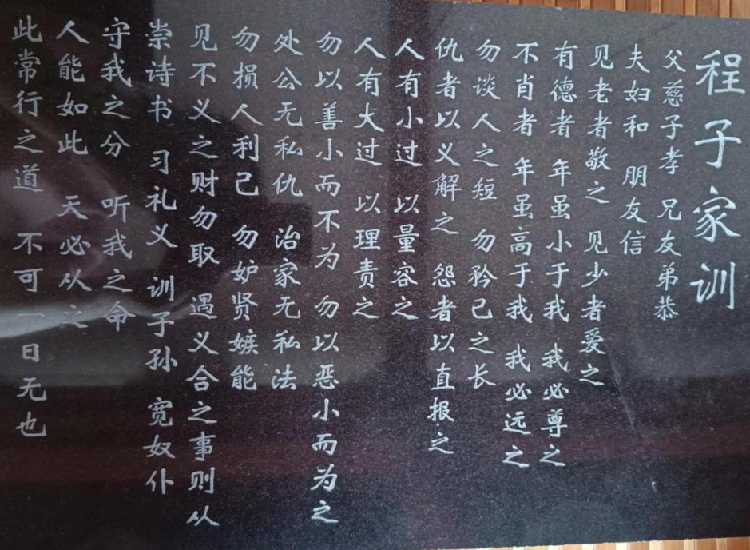 程子家训
父慈子孝 兄友弟恭
夫妇和 朋友信
见老者敬之 见少者爱之
有德者 年虽小于我 我必尊之
不肖者 年虽高于我 我必远之
勿谈人之短 勿矜己之长
仇者以义解之 怨者以直报之
人有小过 以量容之
人有大过 以理责之
勿以善小而不为 勿以恶小而为之
处公无私仇 治家无私法
勿损人利己 勿妒贤嫉能
见不义之财勿取 遇义合之事则从
崇诗书 习礼义 训子孙 宽奴仆
守我之分 听我之命
人能如此 天必从之
此常行之道 不可一日无也